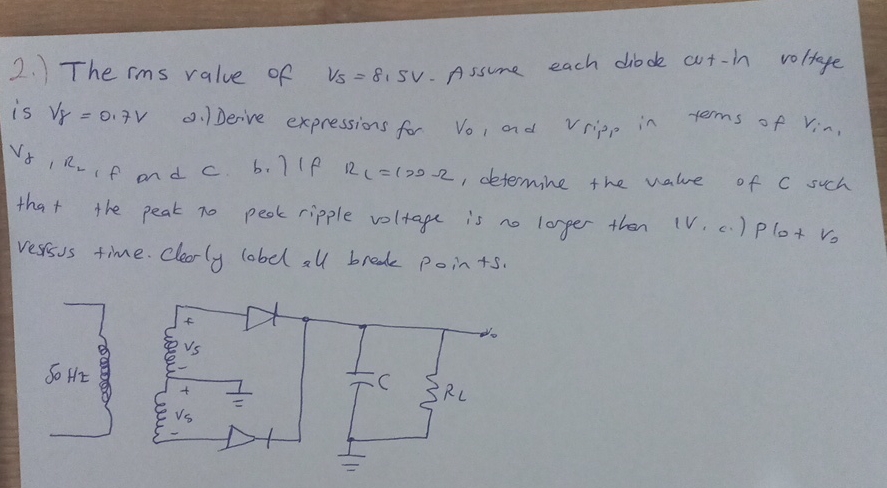 2.) The rms value of Vs = 8.5V. Assume each diode cut-in voltage
is Vγ = 0.7V a.) Derive expressions for Vo, and Vripp in terms of Vin,
Vγ, RL, f and C. b.) If RL = 120 Ω, determine the value of C such
that the peak to peak ripple voltage is no larger than 1V. c.) Plot Vo
versus time. Clearly label all break points.
+
Vs
-
50 Hz
+
Vs
-
C
RL
Vo